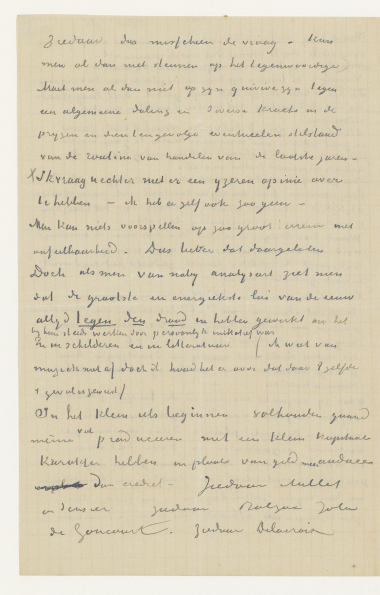 Ziedaar dus misschien de vraag – kan
men al dan niet steunen op het tegenwoordige
Moet men al dan niet op zyn quivive zyn tegen
een algemeene daling en diverse kracks in de
pryzen en dientengevolge eventueelen stilstand
van de routine van handelen van de laatste jaren –
Ik vraag U echter niet er een yzeren opinie over
te hebben – ik heb ze zelf ook zoo zeer –
Men kan niets voorspellen op zoo groot met
onfeilbaarheid. Dus liever dat daargelaten
Doch als men van naby analyseert ziet men
dat de grootste en energiekste lui van de eeuw
altyd tegen den draad in hebben gewerkt en het
by hen steeds werken door persoonlyk initiatief was
En in schilderen en in litteratuur (ik weet van
muziek niet af doch ik houd het er voor dat daar 't zelfde
gevolgd
In het klein iets beginnen volhouden quand
même veel produceeren met een klein kapitaal
karakter hebben in plaats van geld meer audace
dan crediet – Ziedaar Millet
en Sensier ziedaar Balzac Zola
de Goncourt. ziedaar Delacroix